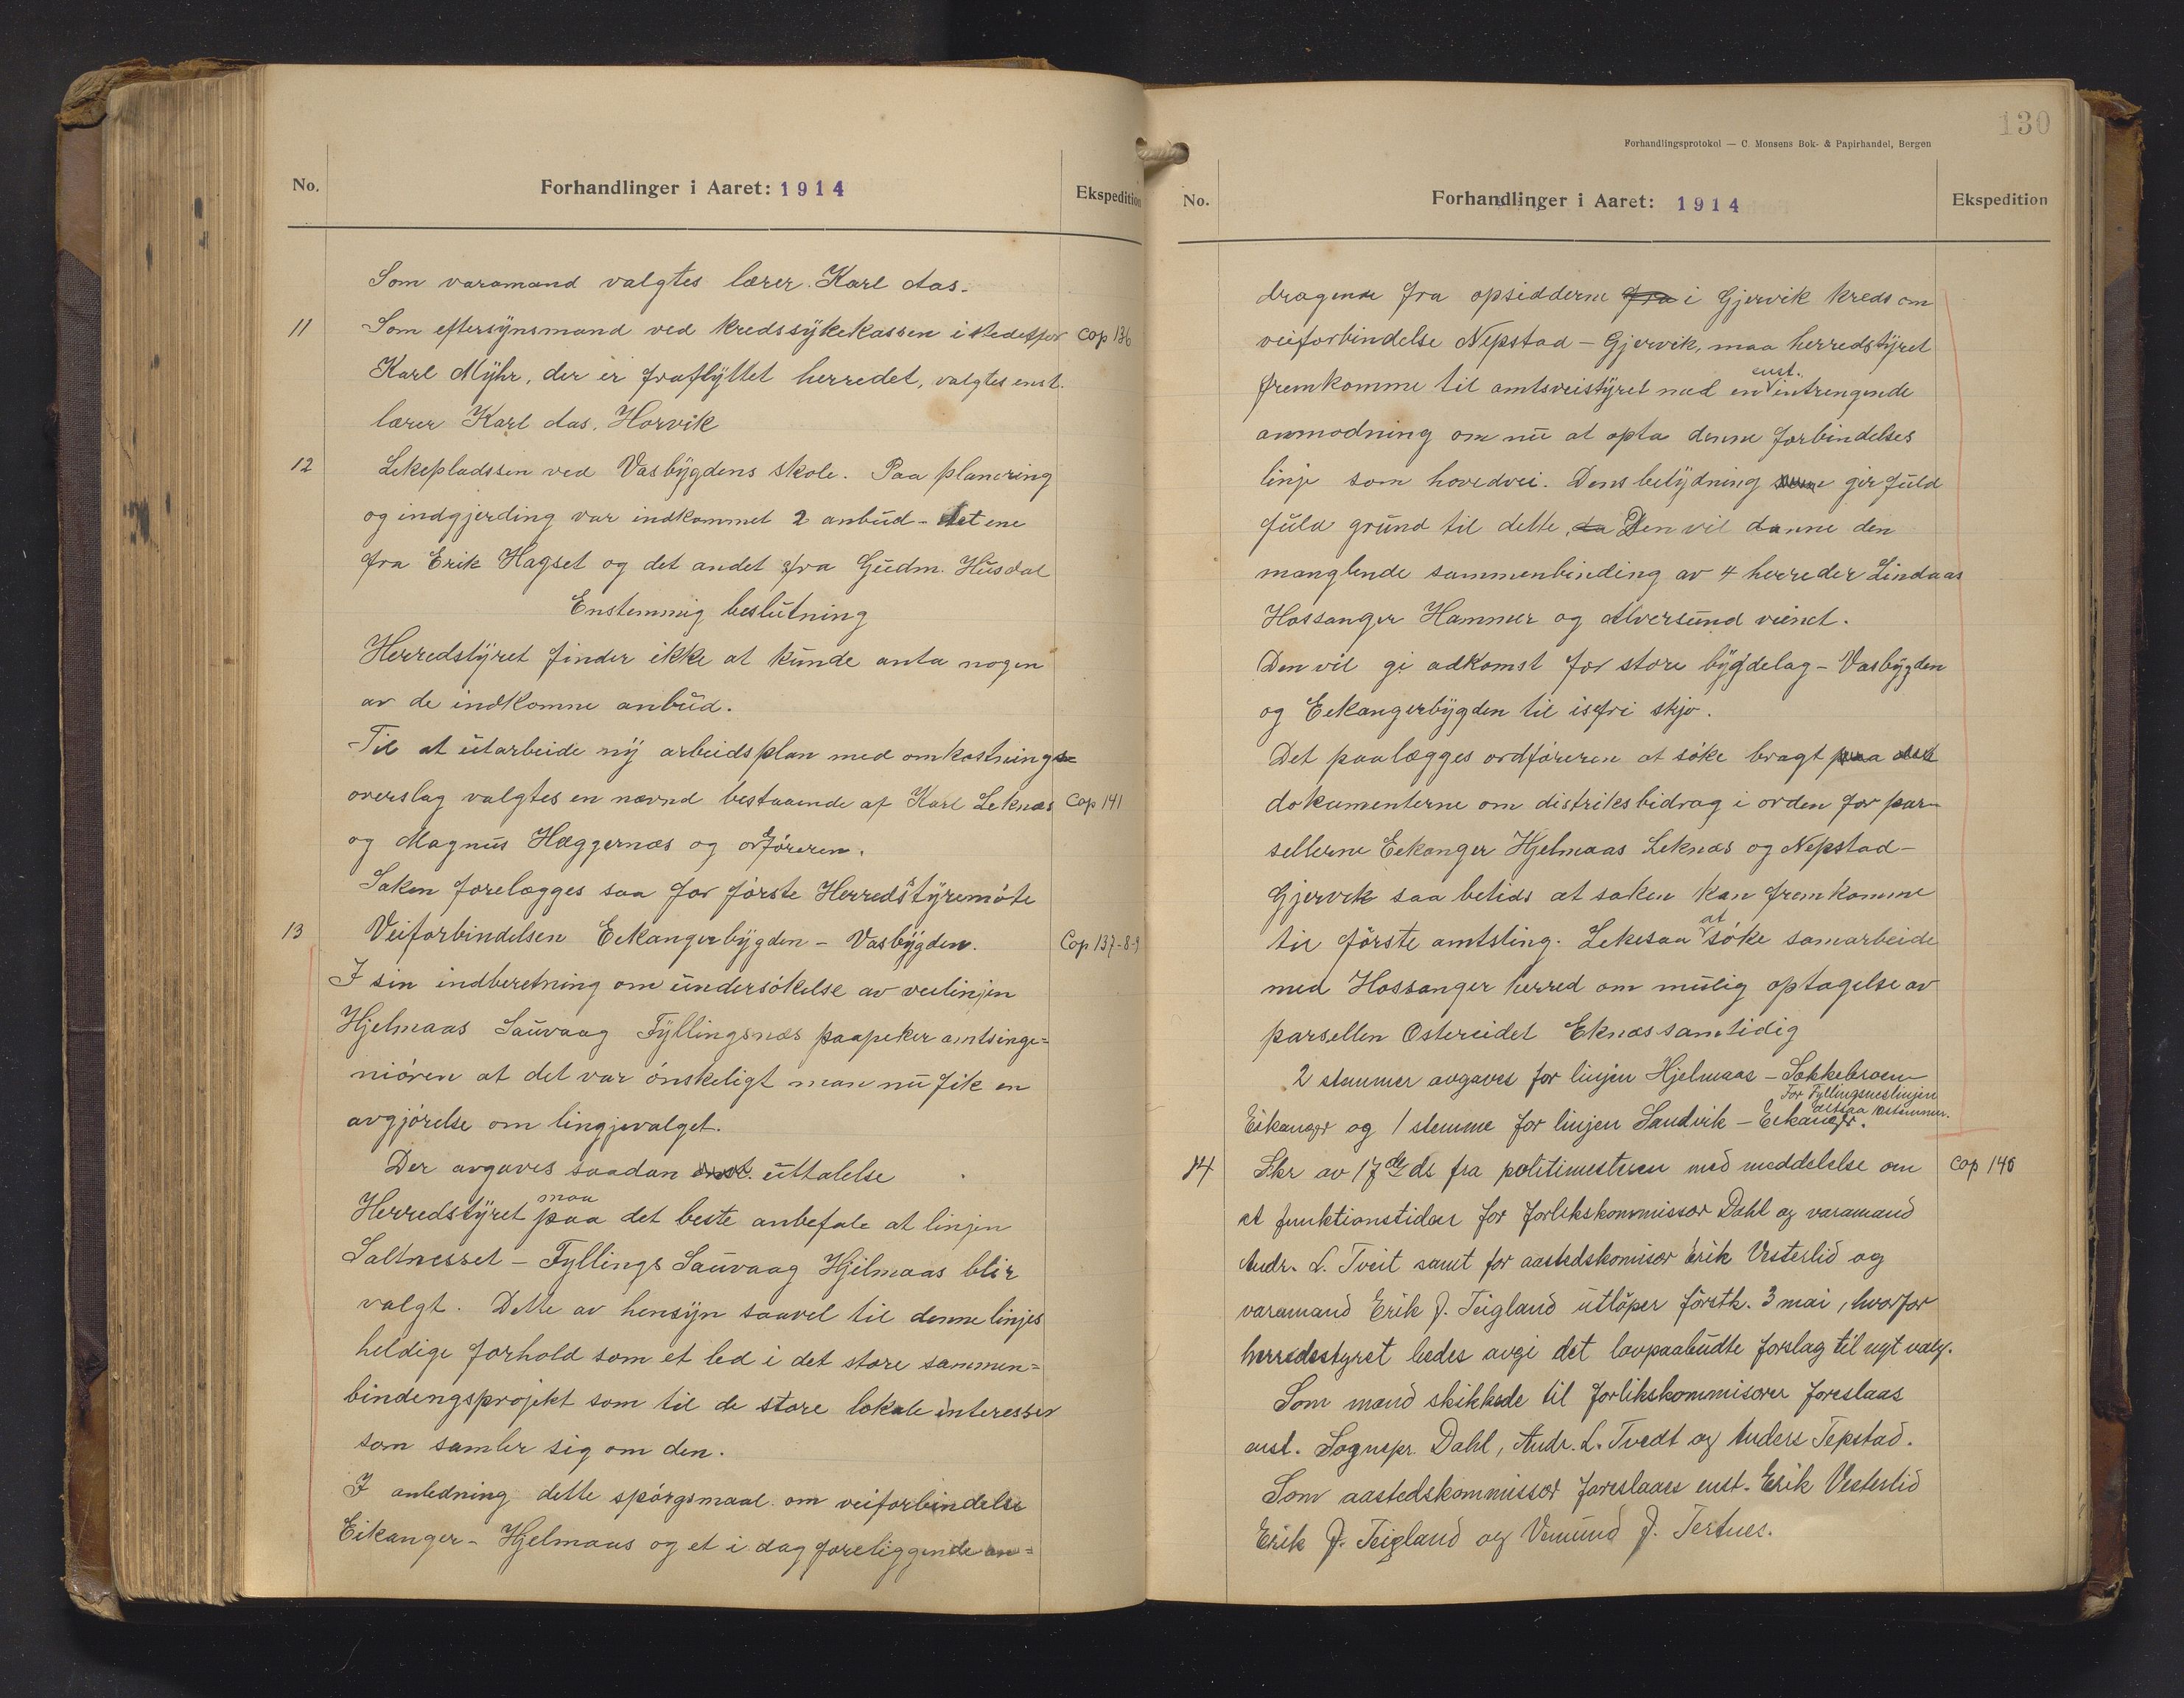 No.
Forhandlinger i Aaret: 1914
Ekspedition
Som varamand valgtes lærer Karl Aas.
11 Som eftersynsmand ved kredssykekassen istedetfor Cop 136
Karl Myhr, der er fraflyttet herredet, valgtes enst.
lærer Karl Aas. Horvik
12 Lekepladssen ved Vasbygdens skole. Paa planering
og indgjerding var indkommet 2 anbud - det ene
fra Erik Hagset og det andet fra Gudm. Husdal
Enstemmig beslutning
Herredstyret finder ikke at kunde anta nogen
av de indkomne anbud.
Til at utarbeide ny arbeidsplan med omkostnings=
overslag valgtes en nævnd bestaaende af Karl Leknæs Cop 141
og Magnus Hæggernæs og orføreren.
Saken forelægges saa for første Herredsstyremøte
13 Veiforbindelsen Eekangerbygden - Vasbygden. Cop 137-8-9
I sin indberetning om undersøkelse av veilinjen
Hjelmaas Sauvaag Fyllingsnæs paapeker amtsinge=
niøren at det var ønskeligt man nu fik en
avgjørelse om lingjevalget.
Der avgaves saadan enst. uttalelse
Herredstyret maa paa det beste anbefale at linjen
Saltnesset - Fyllings Sauvaag Hjelmaas blir
valgt. Dette av hensyn saavel til denne linjes
heldige forhold som et led i det store sammen=
bindengsprojekt som til de store lokale interesser
som samler sig om den.
I anledning dette spørgsmaal om veiforbindelse
Eikanger - Hjelmaas og et i dag foreliggende an=
130
Forhandlingsprotokol — C. Monsens Bok- & Papirhandel, Bergen
No.
Forhandlinger i Aaret: 1914
Ekspedition
dragende fra opsidderne fra i Gjervik kreds om
veiforbindelse Nepstad - Gjervik, maa herredstyret
fremkomme til amtsveistyret med en enst. intrengende
anmodning om nu at opta denne forbindelses
linje som hovedvei. Dens betydning gir fuld
fuld grund til dette, da Den vil danne den
manglende sammenbinding av 4 herreder Lindaas
Hossanger Hammer og Alversund veinet.
Den vil gi adkomst for store bygdelag - Vasbygden
og Eekangerbygden til isfri skjø.
Det paalægges ordføreren at søke bragt paa det
dokumenterne om distriksbidrag i orden for par-
sellerne Eekanger Hjelmaas Leknæs og Nepstad -
Gjervik saa betids at saken kan fremkomme
til første amtsting. Lekesaa at søke samarbeide
med Hossanger herred om mulig optagelse av
parsellen Ostereidet Eknæs samtidig
2 stemmer avgaves for linjen Hjelmaas - Søkkebroen
For Fyllingsneslinjen
altsaa stemmer.
Eikanger og 1 stemme for linjen Sandvik - Eekanger.
14 Skr av 17de ds fra politimesteren med meddelelse om Cop 140
at funktionstiden for forlikskommissær Dahl og varamand
Andr. L. Tveit samt for aastedskomisær Erik Vesterlid og
varamand Erik J. Teigland utløper førstk. 3 mai, hvorfor
herredsstyret bedes avgi det lovpaabudte forslag til nyt valg.
Som mænd skikkede til forlikskommisærer foreslaas
enst. Sognepr. Dahl, Andr. L. Tvedt og Anders Tepstad.
Som aastedskommissær foreslaaes enst. Erik Vesterlid
Erik J. Teigland og Vemund J. Tertnes.